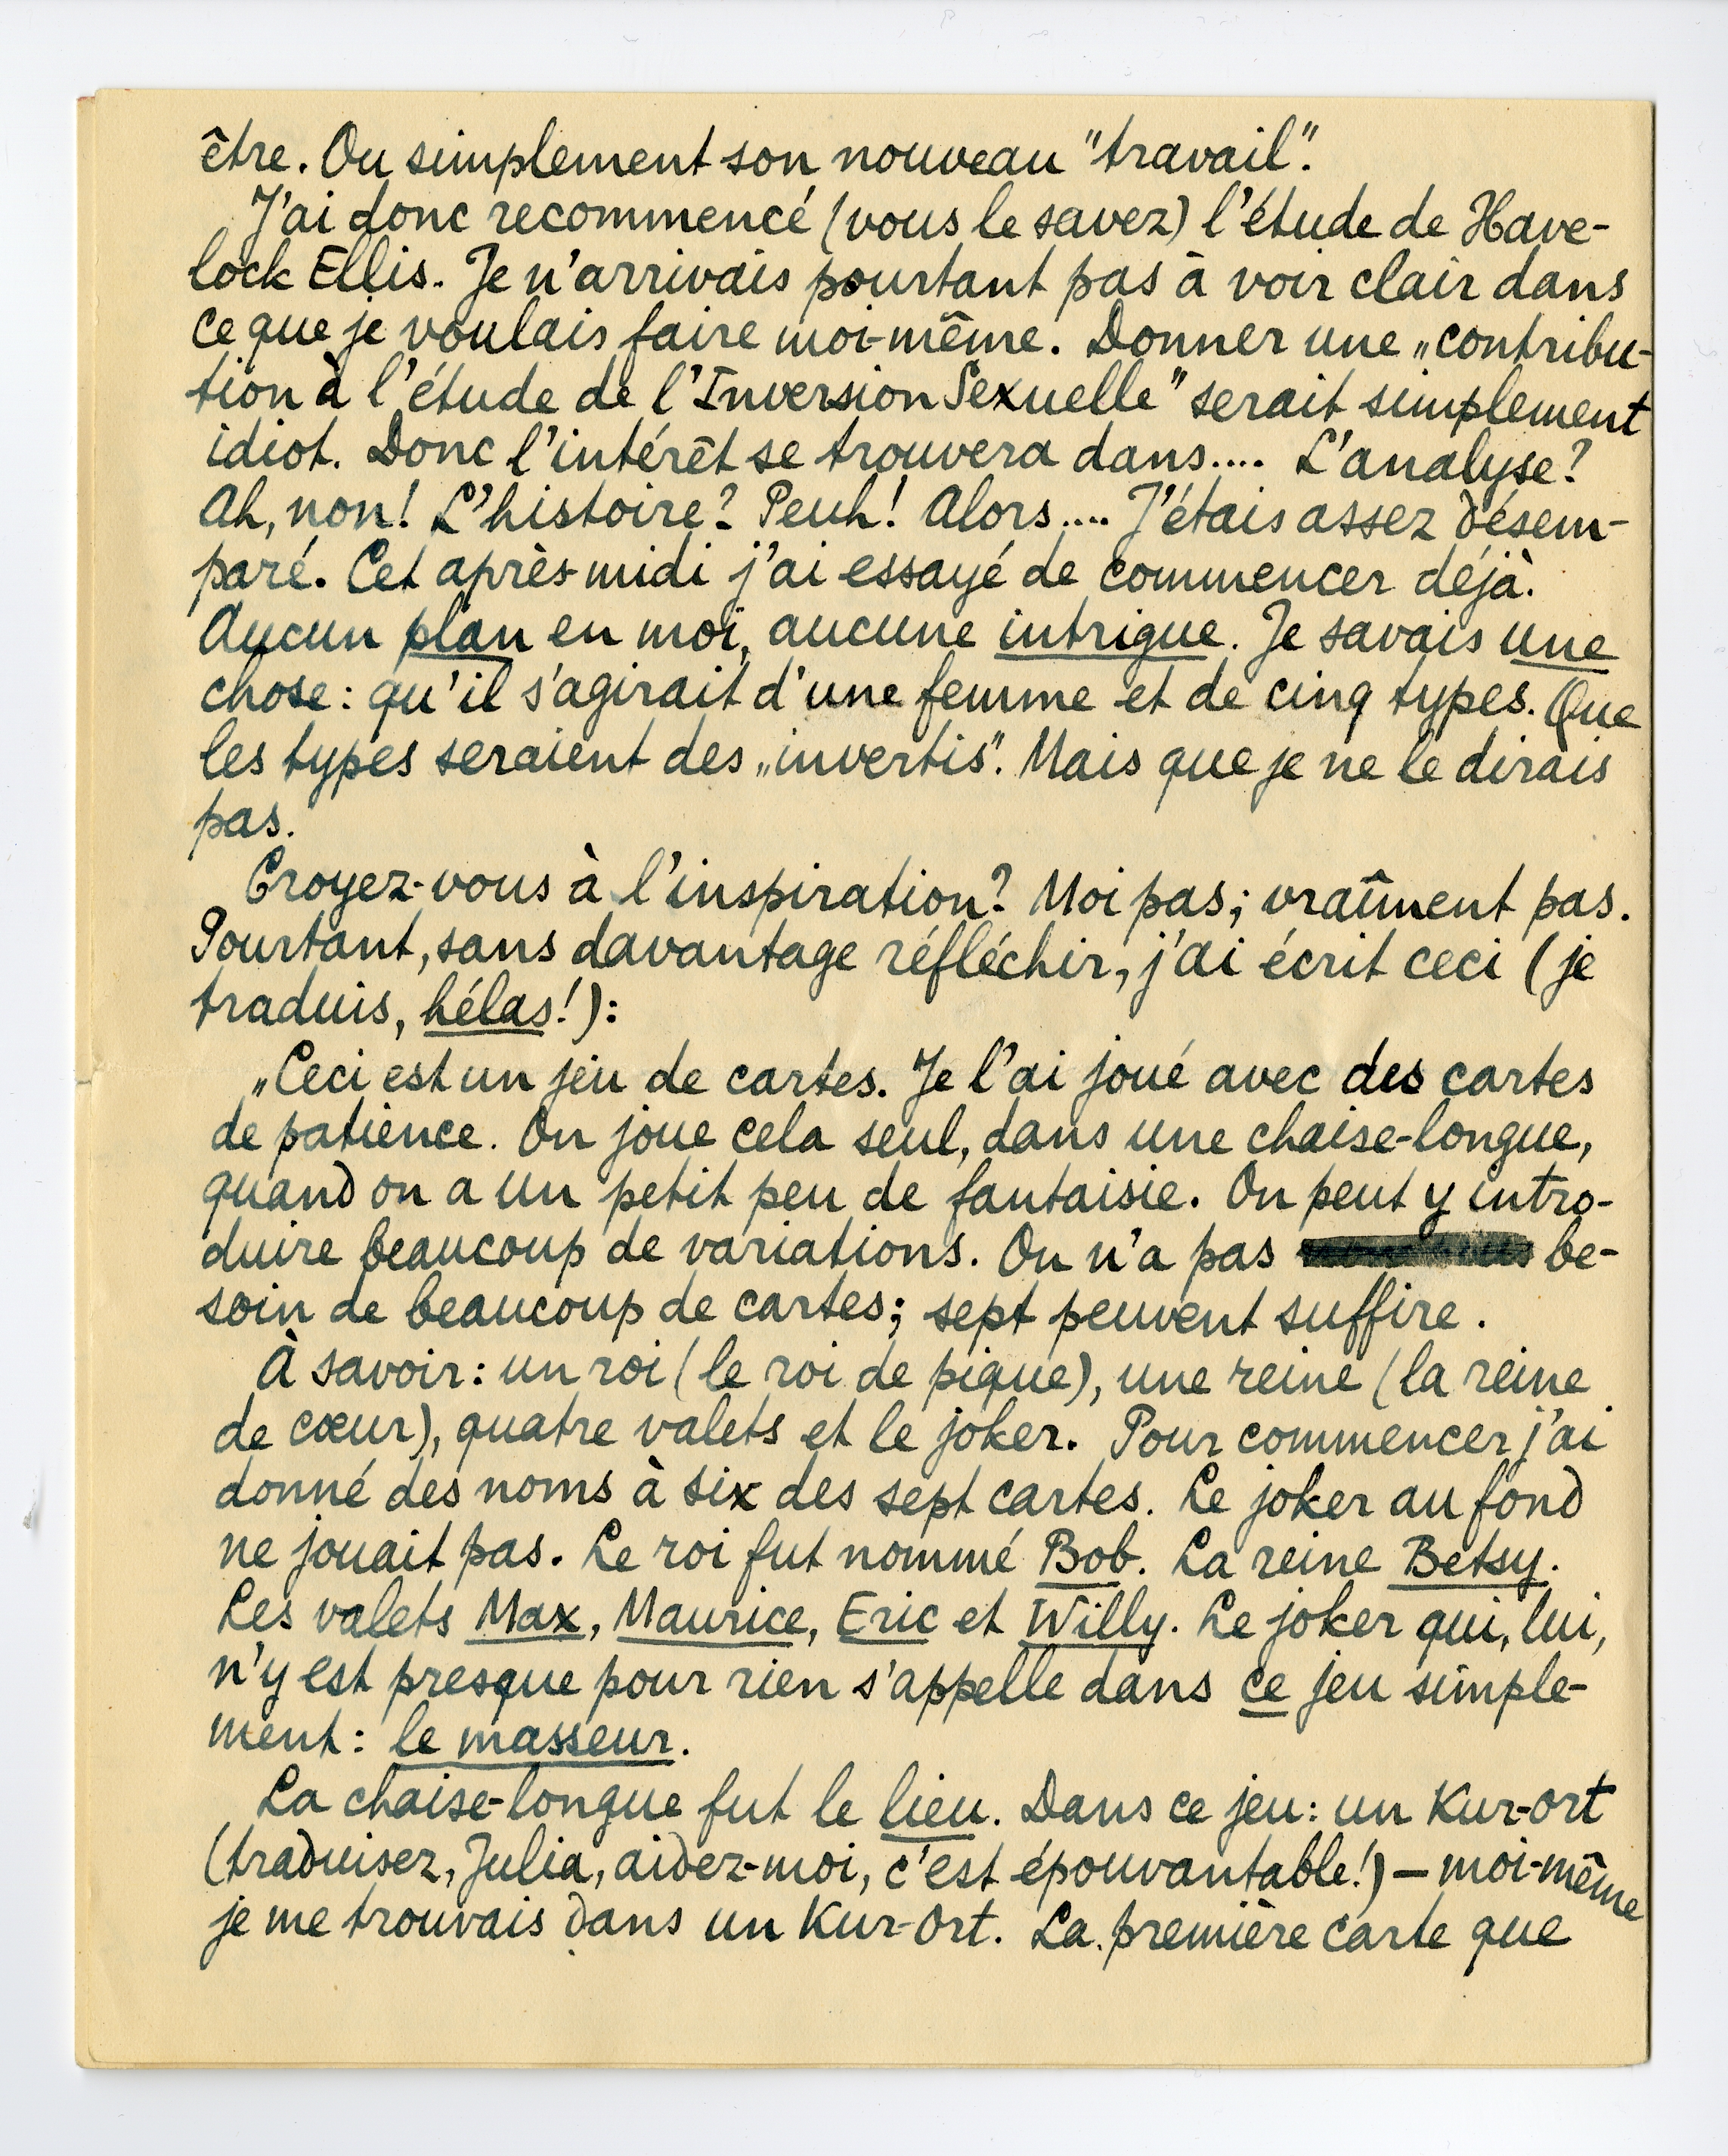 être. Ou simplement son nouveau "travail".
J'ai donc recommencé (vous le savez) l'étude de Have-
lock Ellis. Je n'arrivais pourtant pas à voir clair dans
ce que je voulais faire moi-même. Donner une „contribu-
tion à l'étude de l'Inversion Sexuelle" serait simplement
idiot. Donc l'intérêt se trouvera dans.... L'analyse?
Ah, non! L'histoire? Peuh! Alors.... J'étais assez désem-
paré. Cet après-midi j'ai essayé de commencer déjà.
Aucun plan en moi, aucune intrigue. Je savais une
chose: qu'il s'agirait d'une femme et de cinq types. Que
les types seraient des „invertis". Mais que je ne le dirais
pas.
Croyez-vous à l'inspiration? Moi pas; vraîment pas.
Pourtant, sans davantage réfléchir, j'ai écrit ceci (je
traduis, hélas!):
„Ceci est un jeu de cartes. Je l'ai joué avec des cartes
de patience. On joue cela seul, dans une chaise-longue,
quand on a un petit peu de fantaisie. On peut y intro-
duire beaucoup de variations. On n'a pas be-
soin de beaucoup de cartes; sept peuvent suffire.
À savoir: un roi (le roi de pique), une reine (la reine
de cœur), quatre valets et le joker. Pour commencer j'ai
donné des noms à six des sept cartes. Le joker au fond
ne jouait pas. Le roi fut nommé Bob. La reine Betsy.
Les valets Max, Maurice, Eric et Willy. Le joker qui, lui,
n'y est presque pour rien s'appelle dans ce jeu simple-
ment: le masseur.
La chaise-longue fut le lieu. Dans ce jeu: un Kur-ort
(traduisez, Julia, aidez-moi, c'est épouvantable!) — moi-même
je me trouvais dans un Kur-ort. La première carte que